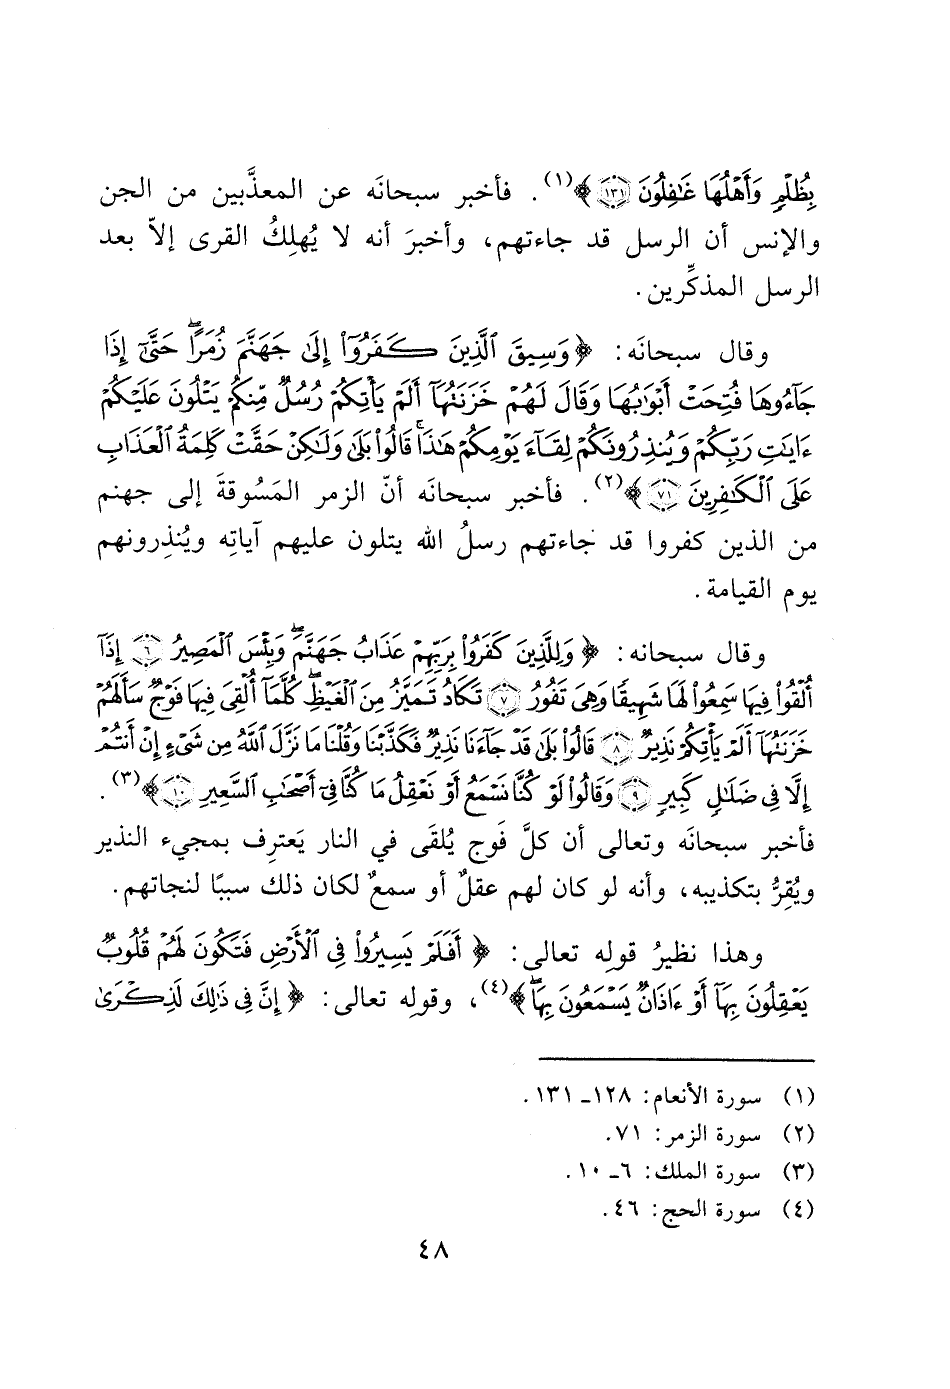 بِظُلْمٍ وَأَهْلُهَا غَٰفِلُونَ ١٣١ ﴾(١). فأخبر سبحانَه عن المعذَّبين من الجن
والإنس أن الرسل قد جاءتهم، وأخبرَ أنه لا يُهلِكُ القرى إلاّ بعد
الرسل المذكِّرين.
وقال سبحانَه: ﴿ وَسِيقَ ٱلَّذِينَ كَفَرُوٓا۟ إِلَىٰ جَهَنَّمَ زُمَرًا ۖ حَتَّىٰٓ إِذَا
جَآءُوهَا فُتِحَتْ أَبْوَٰبُهَا وَقَالَ لَهُمْ خَزَنَتُهَآ أَلَمْ يَأْتِكُمْ رُسُلٌ مِّنكُمْ يَتْلُونَ عَلَيْكُمْ
ءَايَٰتِ رَبِّكُمْ وَيُنذِرُونَكُمْ لِقَآءَ يَوْمِكُمْ هَٰذَا ۚ قَالُوا۟ بَلَىٰ وَلَٰكِنْ حَقَّتْ كَلِمَةُ ٱلْعَذَابِ
عَلَى ٱلْكَٰفِرِينَ ٧١ ﴾(٢). فأخبر سبحانَه أنّ الزمر المَسُوقةَ إلى جهنم
من الذين كفروا قد جاءتهم رسلُ الله يتلون عليهم آياتِه ويُنذِرونهم
يوم القيامة.
وقال سبحانه: ﴿ وَلِلَّذِينَ كَفَرُوا۟ بِرَبِّهِمْ عَذَابُ جَهَنَّمَ ۖ وَبِئْسَ ٱلْمَصِيرُ ٦ إِذَآ
أُلْقُوا۟ فِيهَا سَمِعُوا۟ لَهَا شَهِيقًا وَهِىَ تَفُورُ ٧ تَكَادُ تَمَيَّزُ مِنَ ٱلْغَيْظِ ۖ كُلَّمَآ أُلْقِىَ فِيهَا فَوْجٌ سَأَلَهُمْ
خَزَنَتُهَآ أَلَمْ يَأْتِكُمْ نَذِيرٌ ٨ قَالُوا۟ بَلَىٰ قَدْ جَآءَنَا نَذِيرٌ فَكَذَّبْنَا وَقُلْنَا مَا نَزَّلَ ٱللَّهُ مِن شَىْءٍ إِنْ أَنتُمْ
إِلَّا فِى ضَلَٰلٍ كَبِيرٍ ٩ وَقَالُوا۟ لَوْ كُنَّا نَسْمَعُ أَوْ نَعْقِلُ مَا كُنَّا فِىٓ أَصْحَٰبِ ٱلسَّعِيرِ ١٠ ﴾(٣).
فأخبر سبحانَه وتعالى أن كلَّ فَوج يُلقَى في النار يَعترِف بمجيء النذير
ويُقِرُّ بتكذيبه، وأنه لو كان لهم عقلٌ أو سمعٌ لكان ذلك سببًا لنجاتهم.
وهذا نظيرُ قولِه تعالى: ﴿ أَفَلَمْ يَسِيرُوا۟ فِى ٱلْأَرْضِ فَتَكُونَ لَهُمْ قُلُوبٌ
يَعْقِلُونَ بِهَآ أَوْ ءَاذَانٌ يَسْمَعُونَ بِهَا ۖ﴾(٤)، وقولِه تعالى: ﴿ إِنَّ فِى ذَٰلِكَ لَذِكْرَىٰ
(١) سورة الأنعام: ١٢٨ـ ١٣١.
(٢) سورة الزمر: ٧١.
(٣) سورة الملك: ٦ـ ١٠.
(٤) سورة الحج: ٤٦.
٤٨